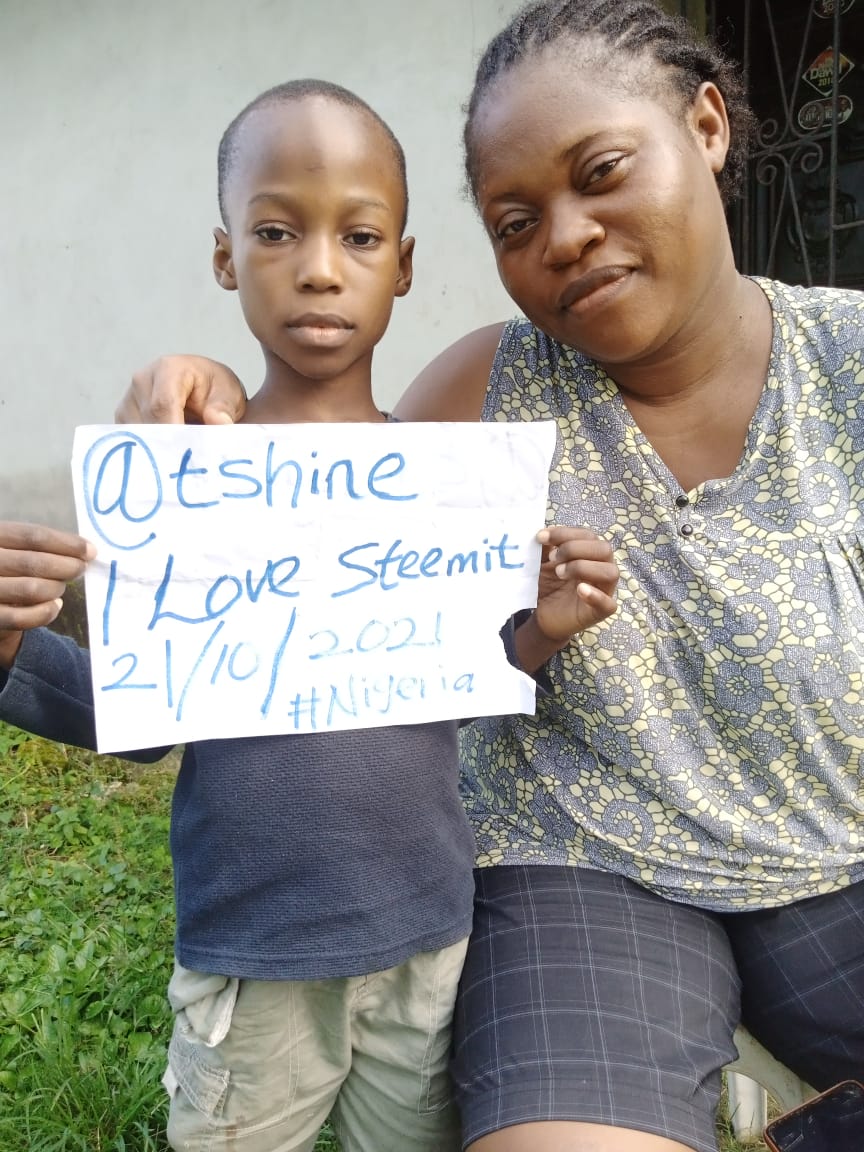 @tshine
I Love Steemit
21/10/2021
#Nigeria